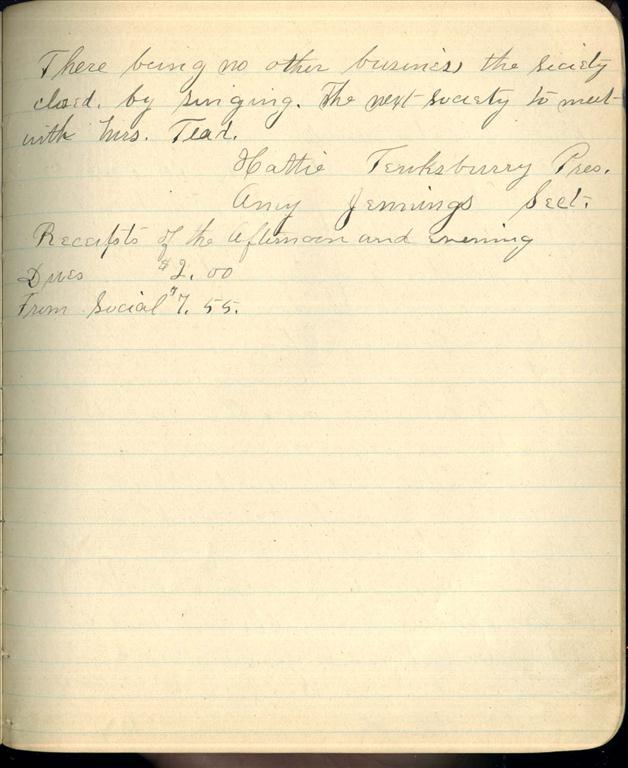 There being no other business the society
closed. by singing. The next society to meet
with Mrs. Tead.
Hattie Tewksburry Pres.
Amy Jennings Sect.
Receipts of the afternoon and evening
Dues $2.00
From Social $7.55.